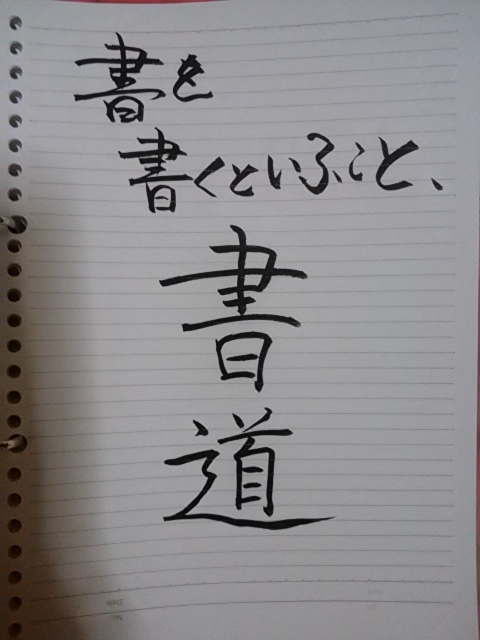 書を
書くといふこと、
書
道